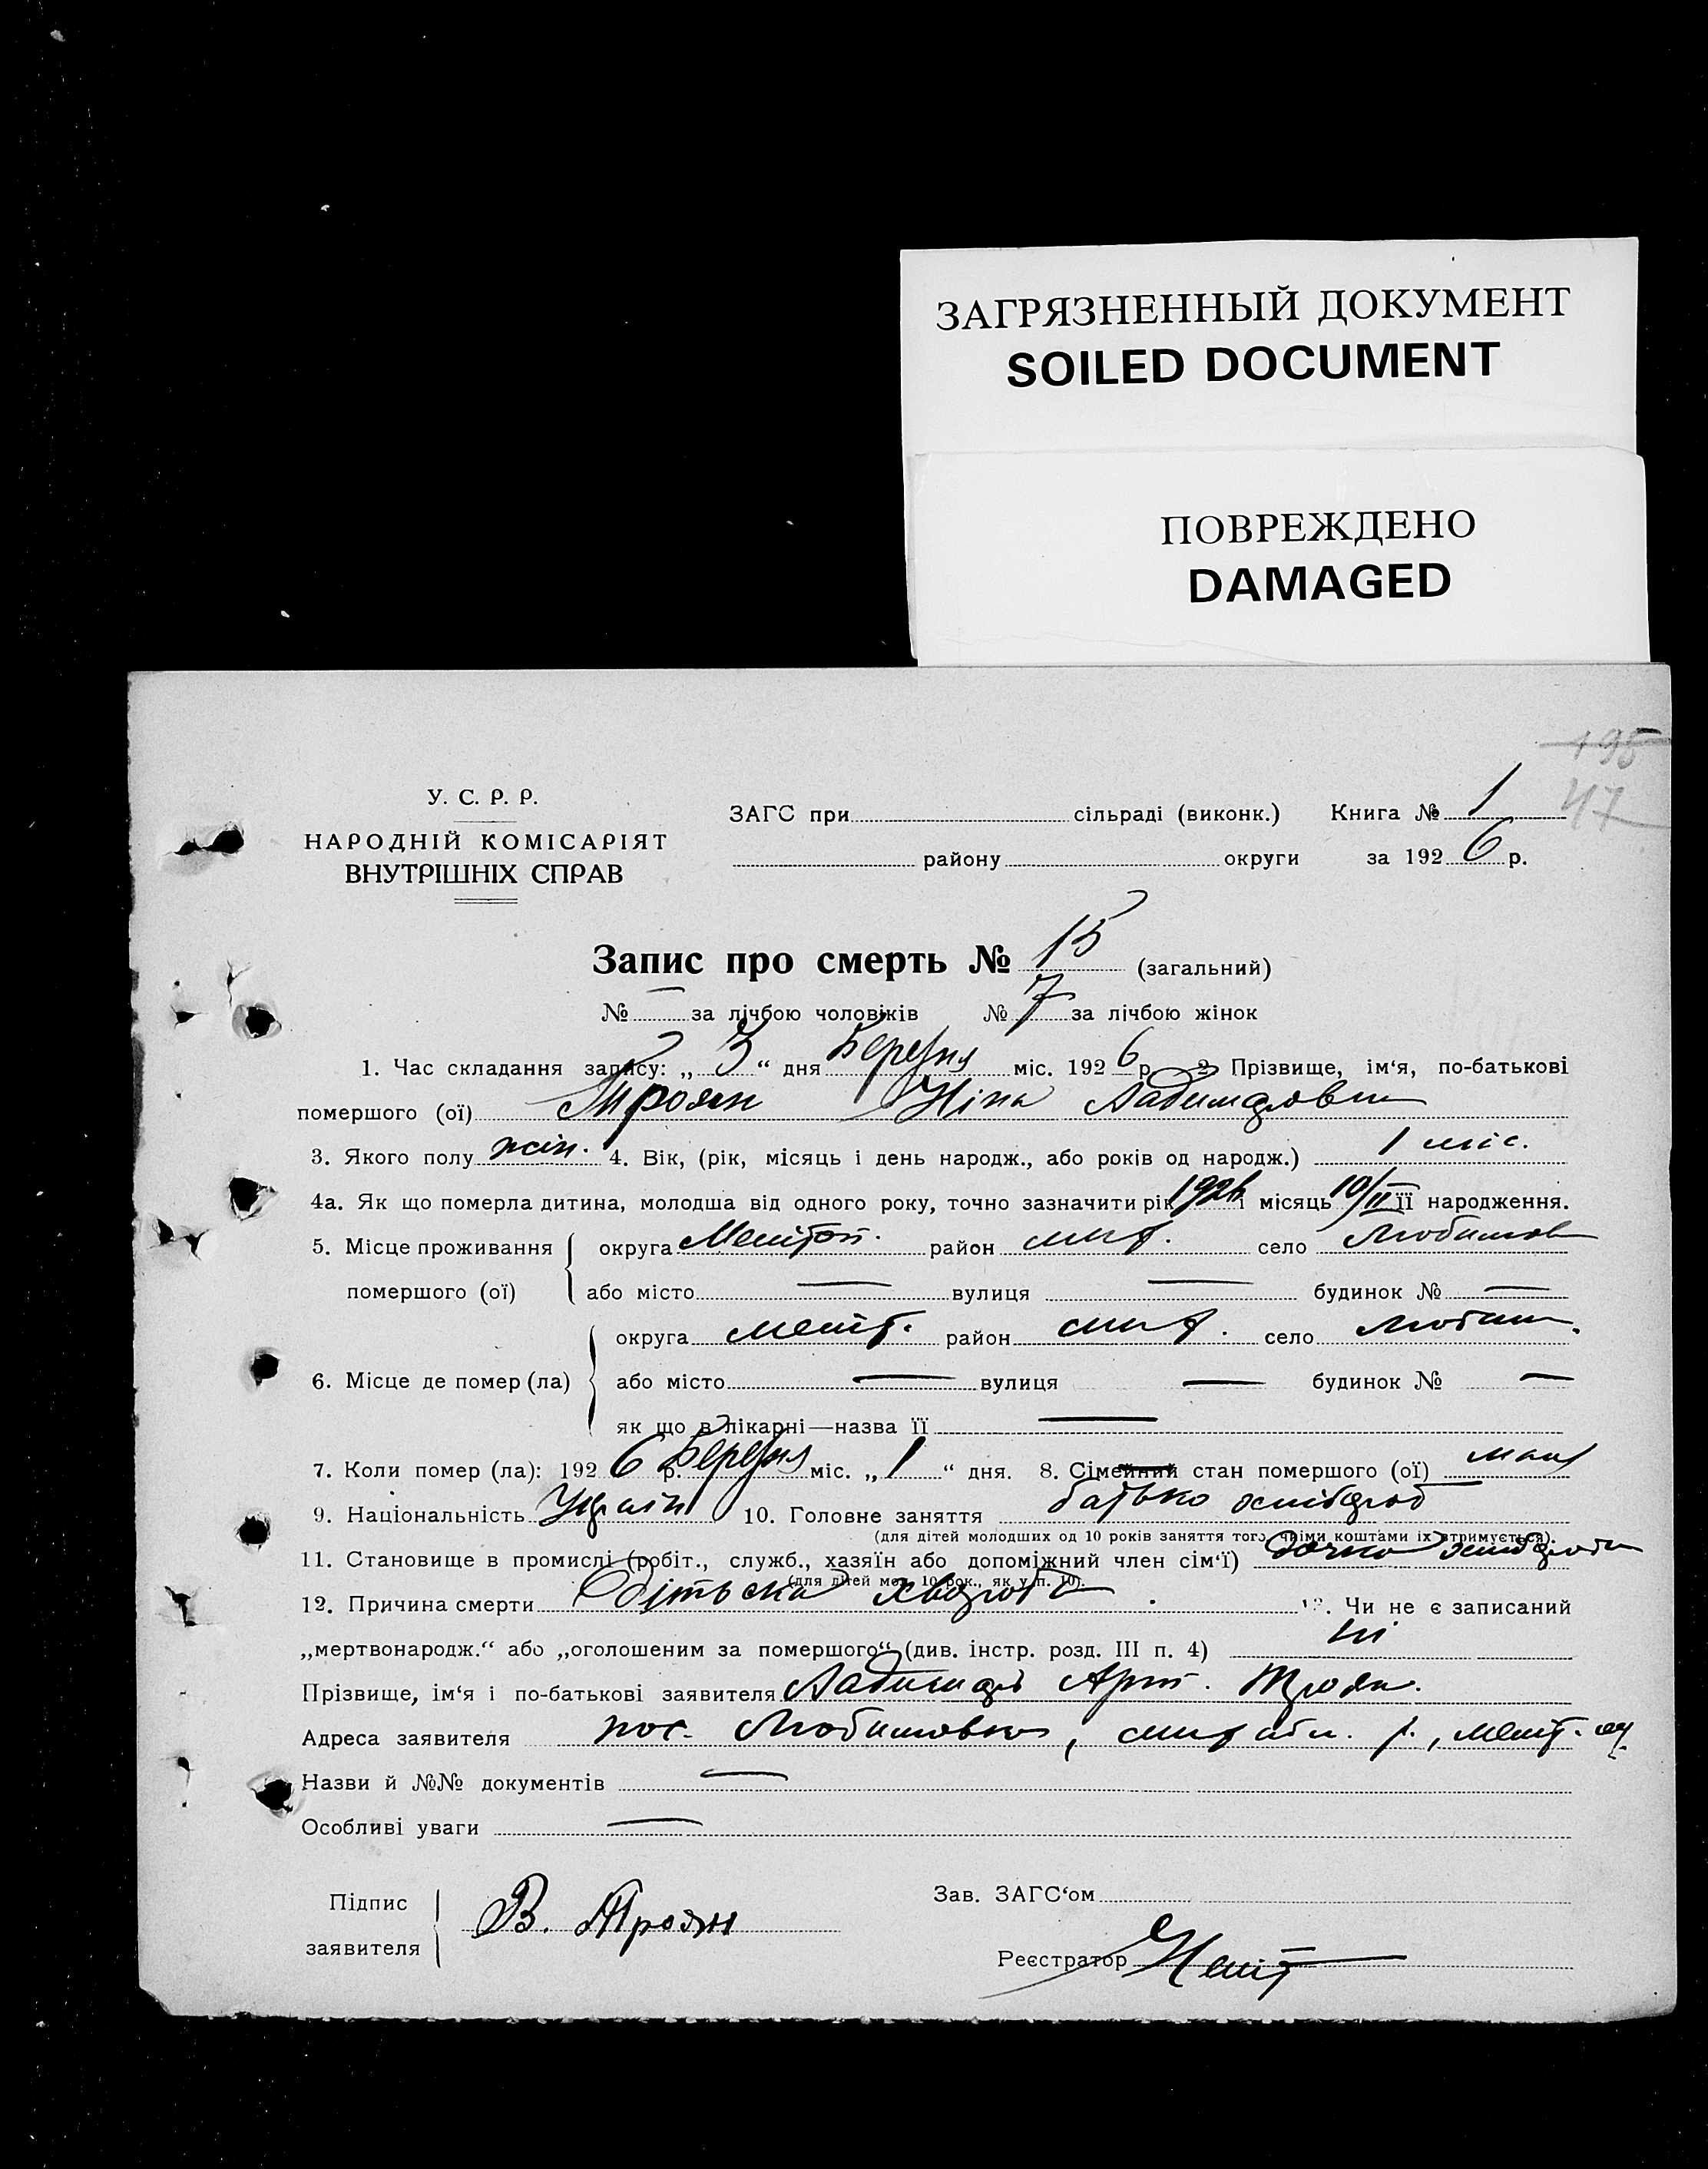 ЗАГРЯЗНЕННЫЙ ДОКУМЕНТ
SOILED DOCUMENT
ПОВРЕЖДЕНО
DAMAGED
195
47
У. С. Р. Р.
НАРОДНІЙ КОМІСАРІЯТ
ВНУТРІШНІХ СПРАВ
ЗАГС при сільраді (виконк.) Книга № 1
району округи за 1926 р.
Запис про смерть № 15 (загальний)
№ — за лічбою чоловіків № 7 за лічбою жінок
1. Час складання запису: „3“ дня Березня міс. 1926 р. 2. Прізвище, ім'я, по-батькові
помершого (ої) Троян Ніна
3. Якого полу жін. 4. Вік, (рік, місяць і день народж., або років од народж.) 1 міс.
4а. Як що померла дитина, молодша від одного року, точно зазначити рік 1926 і місяць 10/II її народження.
5. Місце проживання округа Меліт. район село Любимов
помершого (ої) або місто — вулиця — будинок № —
округа Меліт. район село Любим.
6. Місце де помер (ла) або місто — вулиця — будинок № —
як що в лікарні—назва її —
7. Коли помер (ла): 1926 р. Березня міс. „1“ дня. 8. Сімейний стан помершого (ої)
9. Національність Украін 10. Головне заняття батько хлібороб
(для дітей молодших од 10 років заняття того, чиїми коштами їх втримується).
11. Становище в промислі (робіт., служб., хазяїн або допоміжний член сім'ї) дочка хлібороба
(для дітей мол. 10 рок., як у п. 10).
12. Причина смерти Дітьска хвороба 13. Чи не є записаний
„мертвонародж.“ або „оголошеним за помершого“ (див. інстр. розд. III п. 4) ні
Прізвище, ім'я і по-батькові заявителя Арт. Троян.
Адреса заявителя пос. Любимовка, р., Меліт. ок.
Назви й №№ документів —
Особливі уваги —
Підпис Зав. ЗАГС'ом
заявителя В. Троян
Реєстратор